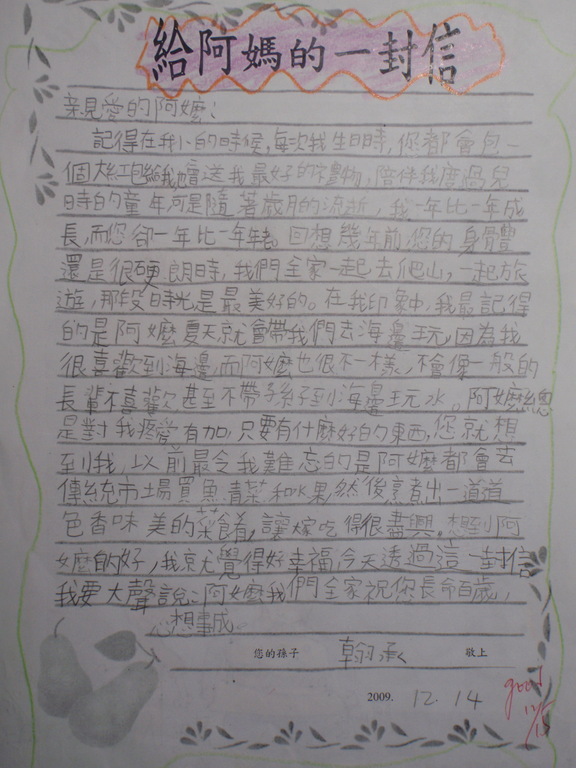 給阿媽的一封信
親愛的阿嬤:
記得在我小的時候,每次我生日時,您都會包一
個大紅包給我還送我最好的禮物,陪伴我度過兒
時的童年可是隨著歲月的流逝,我一年比一年成
長,而您卻一年比一年老。回想幾年前,您的身體
還是很硬朗時,我們全家一起去爬山,一起旅
遊,那段時光是最美好的。在我印象中,我最記得
的是阿嬤夏天就會帶我們去海邊玩,因為我
很喜歡到海邊,而阿嬤也很不一樣,不會像一般的
長輩不喜歡甚至不帶孫子到海邊玩水。阿嬤總
是對我疼愛有加,只要有什麼好的東西,您就想
到我,以前最令我難忘的是阿嬤都會去
傳統市場買魚、青菜、和水果然後烹煮出一道道
色香味美的菜餚,讓嫁吃得很盡興。想到阿
嬤的好,我就覺得好幸福,今天透過這一封信
我要大聲說:阿嬤我們全家祝您長命百歲,
心想事成。
您的孫子 翰承 敬上
2009. 12. 14
good